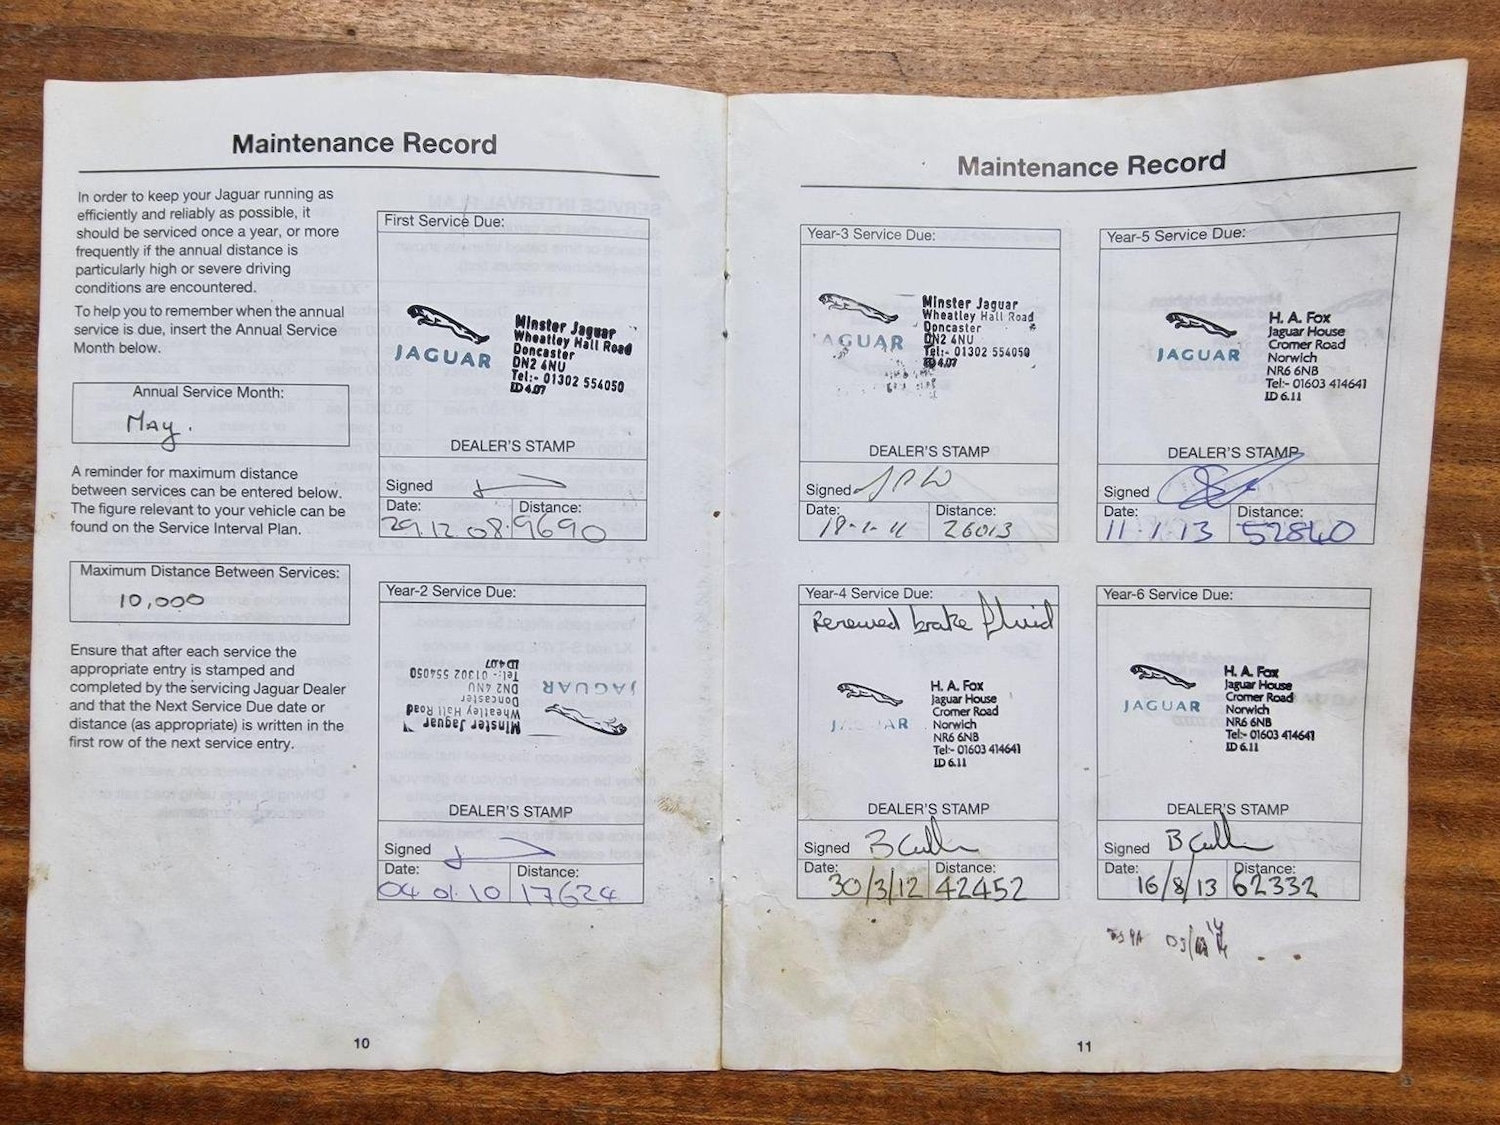 Maintenance Record
In order to keep your Jaguar running as
efficiently and reliably as possible, it
should be serviced once a year, or more
frequently if the annual distance is
particularly high or severe driving
conditions are encountered.
To help you to remember when the annual
service is due, insert the Annual Service
Month below.
Annual Service Month:
May.
A reminder for maximum distance
between services can be entered below.
The figure relevant to your vehicle can be
found on the Service Interval Plan.
Maximum Distance Between Services:
10,000
Ensure that after each service the
appropriate entry is stamped and
completed by the servicing Jaguar Dealer
and that the Next Service Due date or
distance (as appropriate) is written in the
first row of the next service entry.
First Service Due:
JAGUAR
Minster Jaguar
Wheatley Hall Road
Doncaster
DN2 4NU
Tel:- 01302 554050
ID 4.07
DEALER'S STAMP
Signed
Date: Distance:
29.12 08. 9690
Year-2 Service Due:
JAGUAR
Minster Jaguar
Wheatley Hall Road
Doncaster
DN2 4NU
Tel:- 01302 554050
ID 4.07
DEALER'S STAMP
Signed
Date: Distance:
04 01.10 17624
10
Maintenance Record
Year-3 Service Due:
JAGUAR
Minster Jaguar
Wheatley Hall Road
Doncaster
DN2 4NU
Tel:- 01302 554050
ID 4.07
DEALER'S STAMP
Signed
Date: Distance:
18-1-11 26013
Year-4 Service Due:
Renewed brake fluid
JAGUAR
H. A. Fox
Jaguar House
Cromer Road
Norwich
NR6 6NB
Tel:- 01603 414641
ID 6.11
DEALER'S STAMP
Signed B Cull
Date: Distance:
30/3/12 42452
Year-5 Service Due:
JAGUAR
H. A. Fox
Jaguar House
Cromer Road
Norwich
NR6 6NB
Tel:- 01603 414641
ID 6.11
DEALER'S STAMP
Signed
Date: Distance:
11.1.13 52840
Year-6 Service Due:
JAGUAR
H. A. Fox
Jaguar House
Cromer Road
Norwich
NR6 6NB
Tel:- 01603 414641
ID 6.11
DEALER'S STAMP
Signed B Cull
Date: Distance:
16/8/13 62332
11